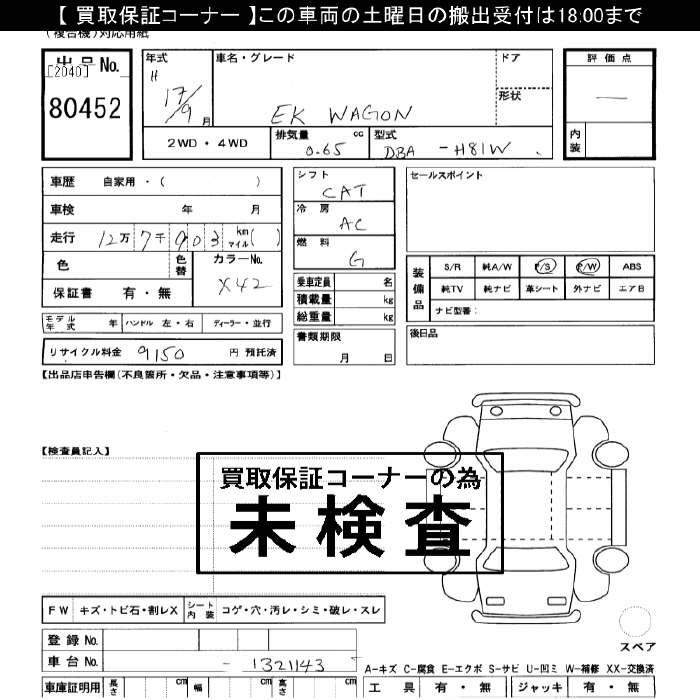 【 買取保証コーナー 】この車両の土曜日の搬出受付は18:00まで
(複合機)対応用紙
出品 No.
[2040]
80452
年式
H
17/9 月
車名・グレード
EK WAGON
ドア
形状
評価点
—
内装
2WD・4WD
排気量 cc
0.65
型式
DBA - H81W
車歴 自家用・( )
車検 年 月
走行 12万 7千 903 km マイル ( )
色
色替
カラーNo.
X42
保証書 有・無
モデル年式 年
ハンドル 左・右
ディーラー・並行
リサイクル料金 9150 円 預託済
シフト
CAT
冷房
AC
燃料
G
乗車定員 名
積載量 kg
総重量 kg
書類期限
月 日
セールスポイント
装備品
S/R 純A/W P/S P/W ABS
純TV 純ナビ 革シート 外ナビ エアB
ナビ型番:
後日品
【出品店申告欄(不良箇所・欠品・注意事項等)】
【検査員記入】
買取保証コーナーの為
未検査
FW キズ・トビ石・割レX
シート内装 コゲ・穴・汚レ・シミ・破レ・スレ
登録 No.
車台 No. - 1321143
スペア
A-キズ C-腐食 E-エクボ S-サビ U-凹ミ W-補修 XX-交換済
車庫証明用 長さ cm 幅 cm 高さ cm
工具 有・無 ジャッキ 有・無